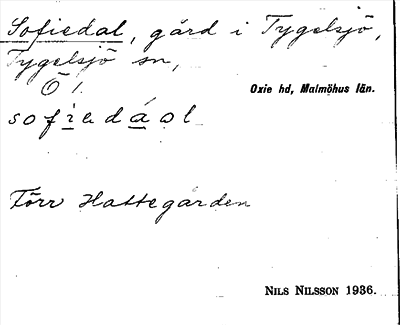 Sofiedal, gård i Tygelsjö,
Tygelsjö sn,
Ö 1.
Oxie hd, Malmöhus län.
sofiedáol
Förr Hattegården
NILS NILSSON 1936.